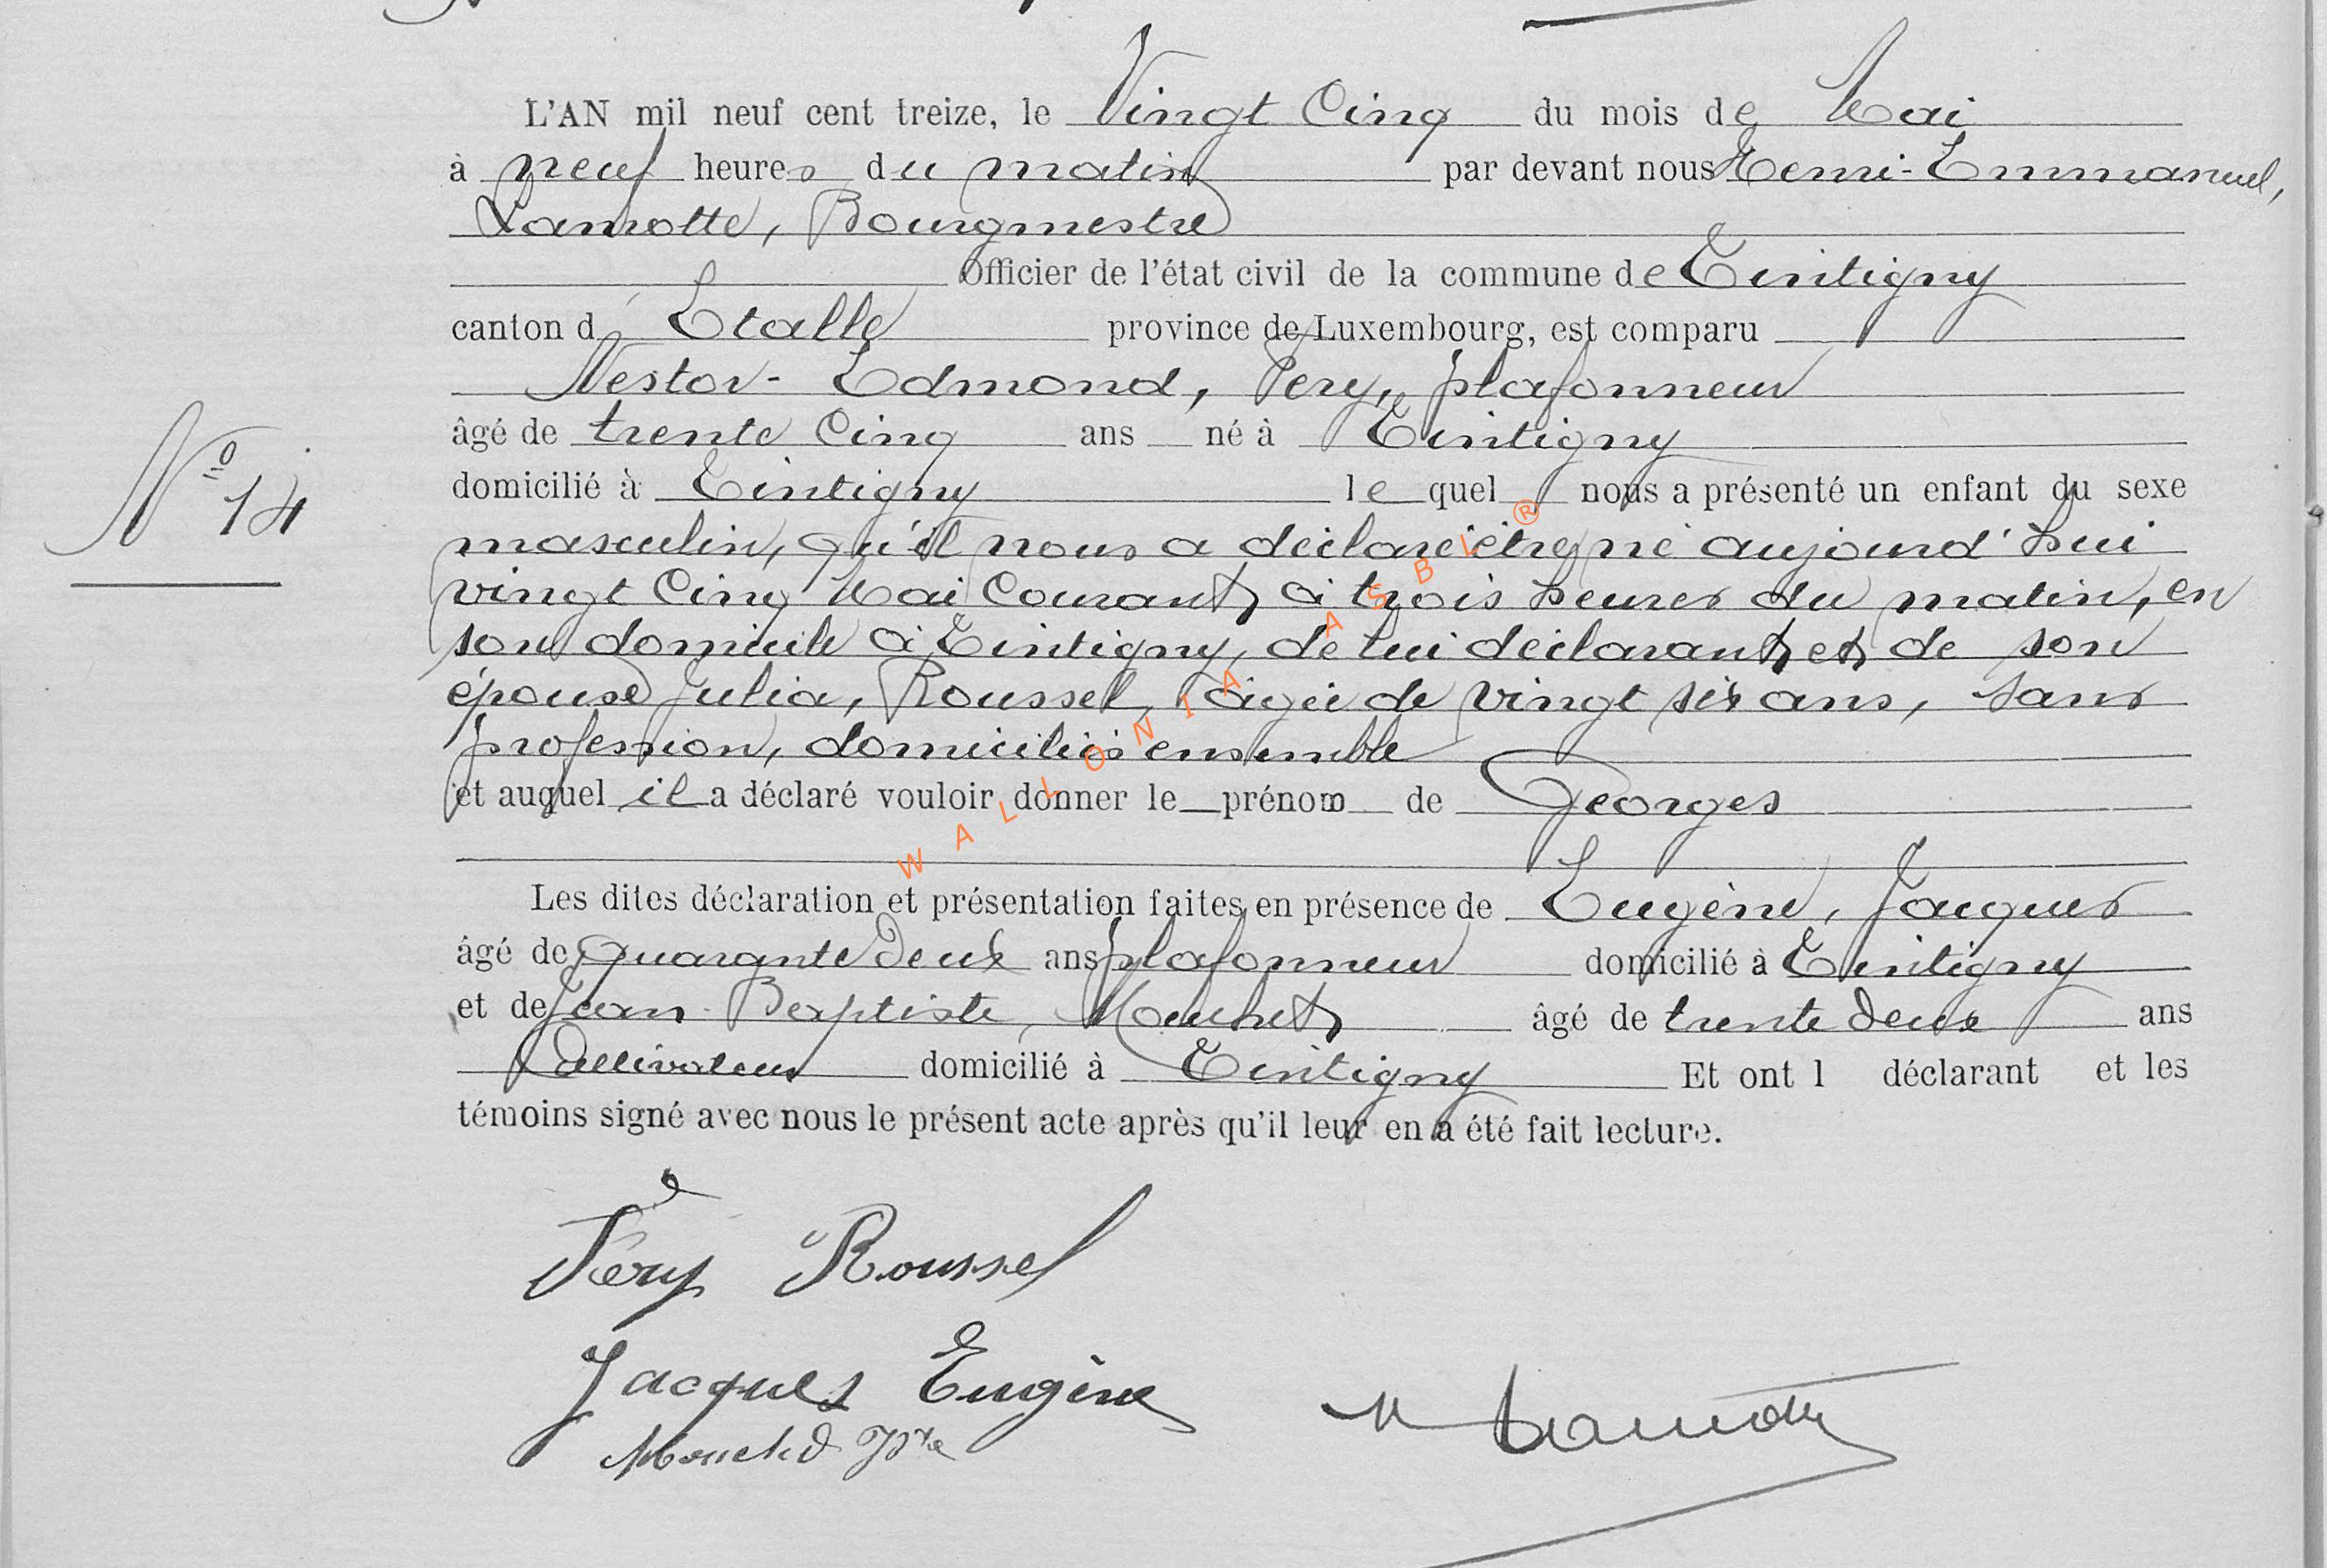 L'AN mil neuf cent treize, le Vingt Cinq du mois de Mai
à neuf heures du matin par devant nous Henri-Emmanuel,
Lamotte, Bourgmestre
Officier de l'état civil de la commune de Tintigny
canton d' Etalle province de Luxembourg, est comparu
Nestor-Edmond, Féry, plafonneur
âgé de trente Cinq ans né à Tintigny
domicilié à Tintigny le quel nous a présenté un enfant du sexe
N° 14
masculin, qu'il nous a déclaré être né aujourd'hui
vingt Cinq Mai Courant, à trois heures du matin, en
son domicile à Tintigny, de lui déclarant et de son
épouse Julia, Roussel, âgée de vingt six ans, sans
profession, domiciliés ensemble
et auquel il a déclaré vouloir donner le prénom de Georges
WALLONIA ASBL ®
Les dites déclaration et présentation faites en présence de Eugène, Jacques
âgé de quarante deux ans plafonneur domicilié à Tintigny
et de Jean-Baptiste, Mouchet âgé de trente deux ans
Cultivateur domicilié à Tintigny Et ont l déclarant et les
témoins signé avec nous le présent acte après qu'il leur en a été fait lecture.
Féry Roussel
Jacques Eugène
Mouchet Jbte
Lamotte